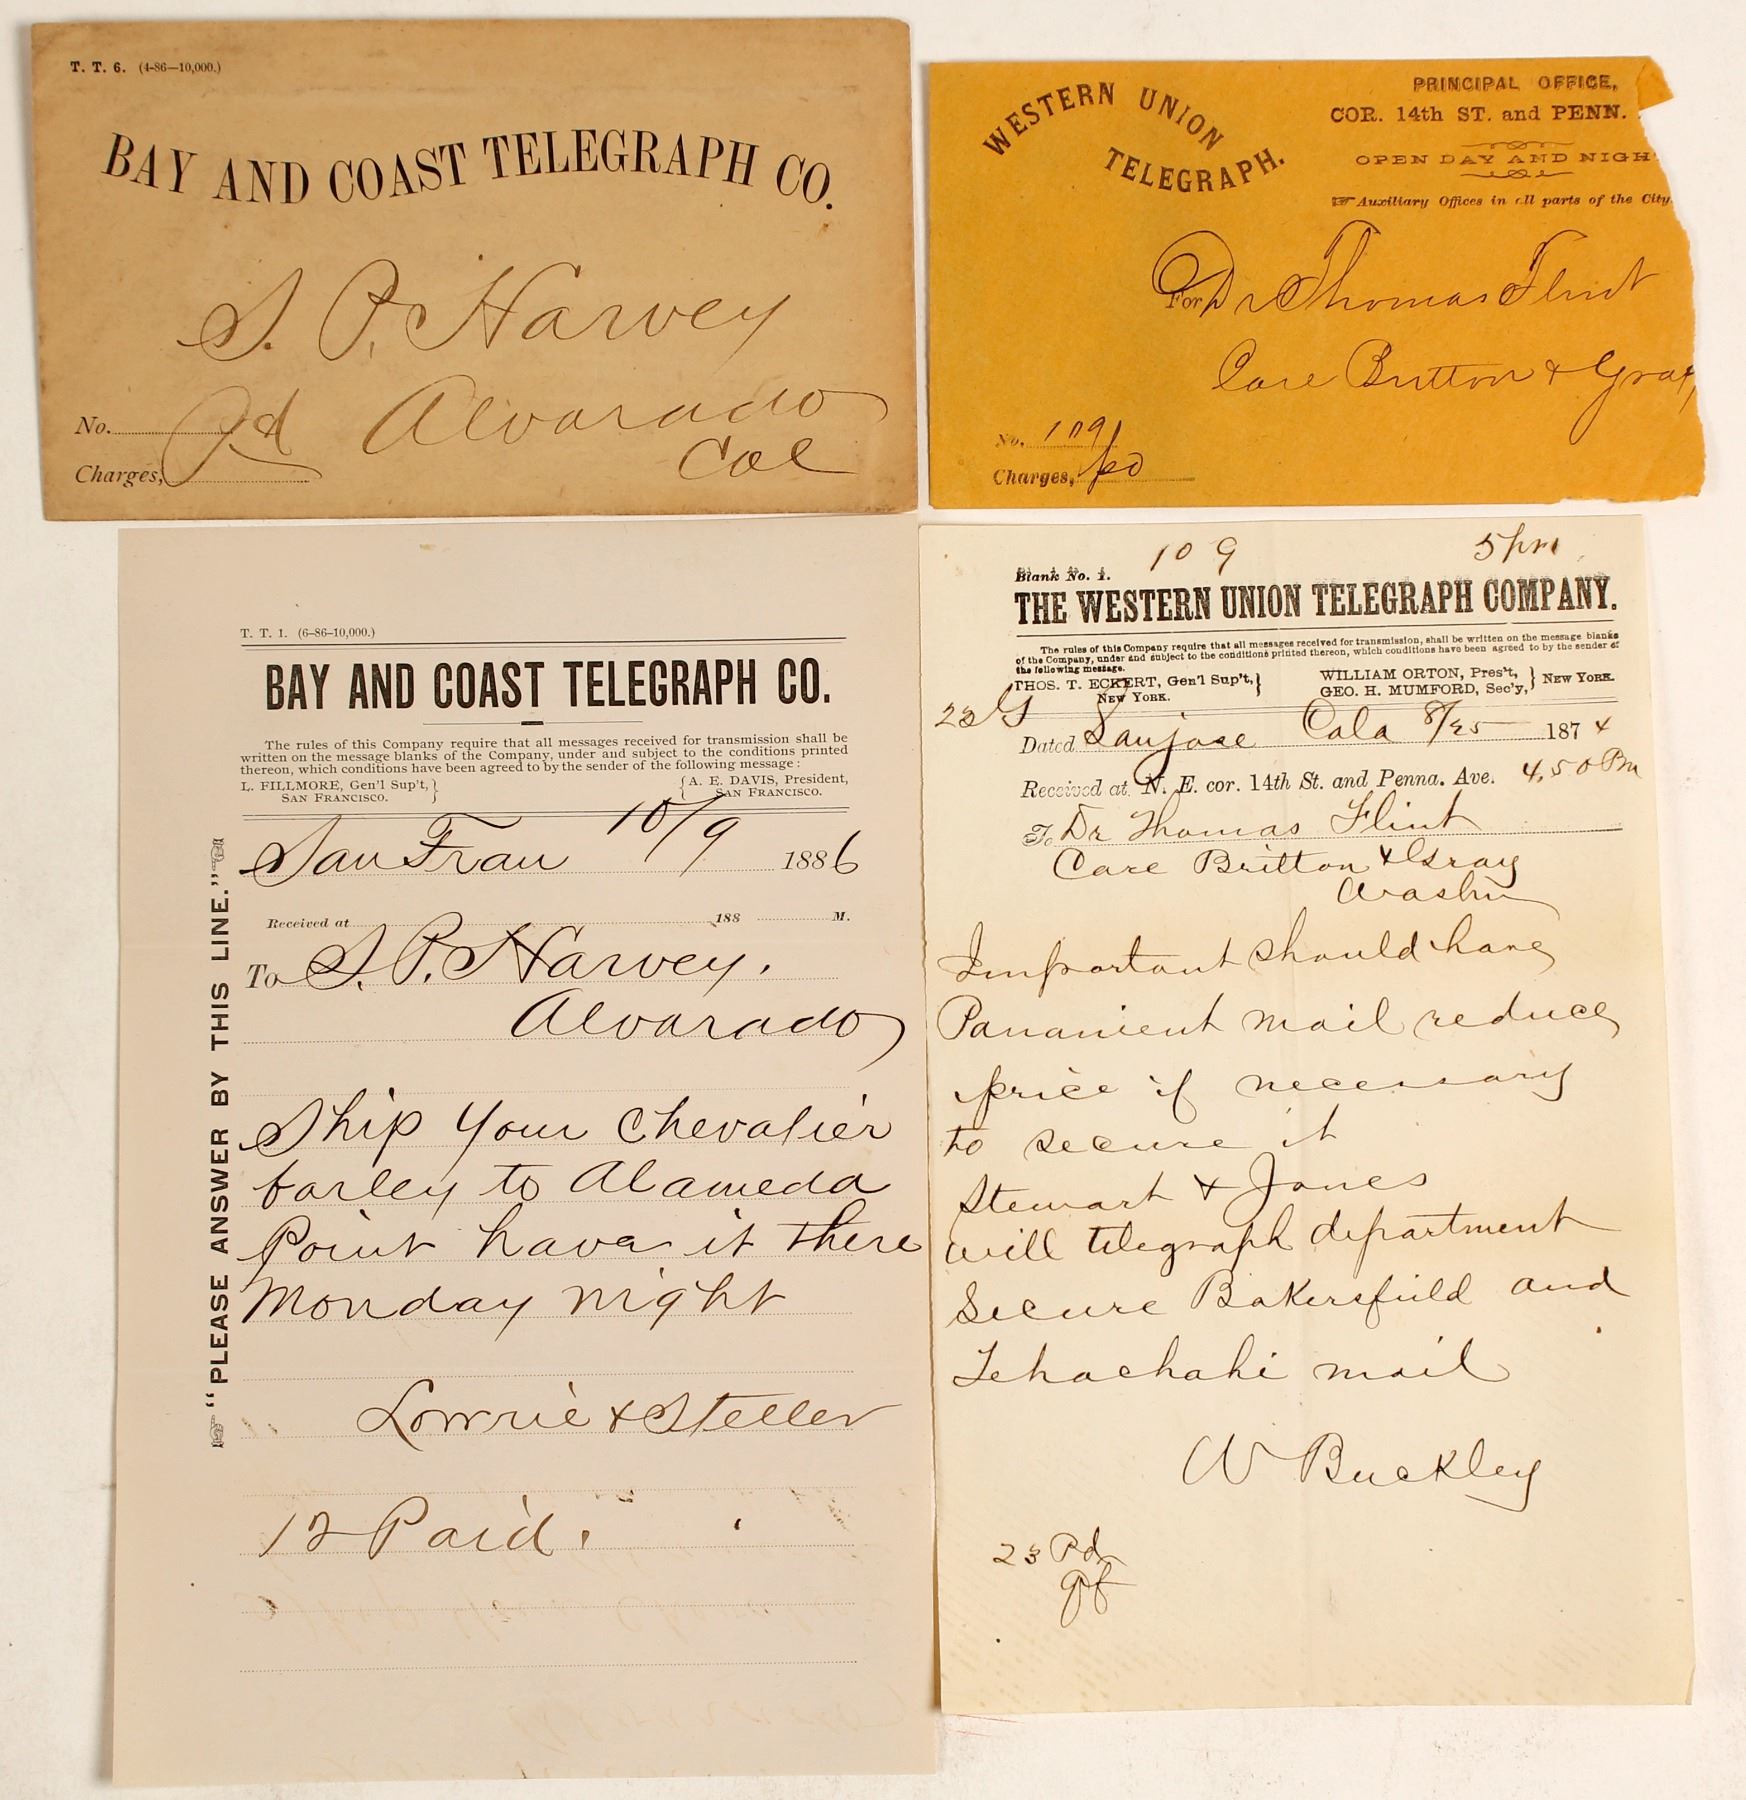 T. T. 6. (4-86—10,000.)
BAY AND COAST TELEGRAPH CO.
S. P. Harvey
Alvarado
Cal
No. Pd
Charges,
WESTERN UNION
TELEGRAPH.
PRINCIPAL OFFICE,
COR. 14th ST. and PENN.
OPEN DAY AND NIGH
☞ Auxiliary Offices in all parts of the City.
For Dr Thomas Flint
Care Britton & Gray
No. 109
Charges, pd
T. T. 1. (6-86-10,000.)
BAY AND COAST TELEGRAPH CO.
The rules of this Company require that all messages received for transmission shall be
written on the message blanks of the Company, under and subject to the conditions printed
thereon, which conditions have been agreed to by the sender of the following message:
L. FILLMORE, Gen'l Sup't,
SAN FRANCISCO.
A. E. DAVIS, President,
SAN FRANCISCO.
San Fran 10/9 1886
Received at 188 M.
To S. P. Harvey.
Alvarado
Ship your Chevalier
barley to Alameda
Point have it there
Monday night
Lowrie & Steller
12 Paid.
☞ "PLEASE ANSWER BY THIS LINE." ☜
109 5 pm
Blank No. 1.
THE WESTERN UNION TELEGRAPH COMPANY.
The rules of this Company require that all messages received for transmission, shall be written on the message blanks
of the Company, under and subject to the conditions printed thereon, which conditions have been agreed to by the sender of
the following message.
THOS. T. ECKERT, Gen'l Sup't,
NEW YORK.
WILLIAM ORTON, Pres't,
GEO. H. MUMFORD, Sec'y,
NEW YORK.
Dated Sanjose Cala 8/25 1874
Received at N. E. cor. 14th St. and Penna. Ave. 4,50 Pm
To Dr Thomas Flint
Care Britton & Gray
Washn
Important should have
Panamient mail reduce
price if necessary
to secure it
Stewart & Jones
will telegraph department
Secure Bakersfield and
Tehachahi mail
W Buckley
23 Pd